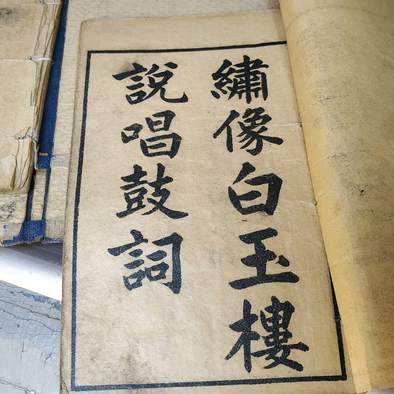 繡像白玉樓
說唱鼓詞